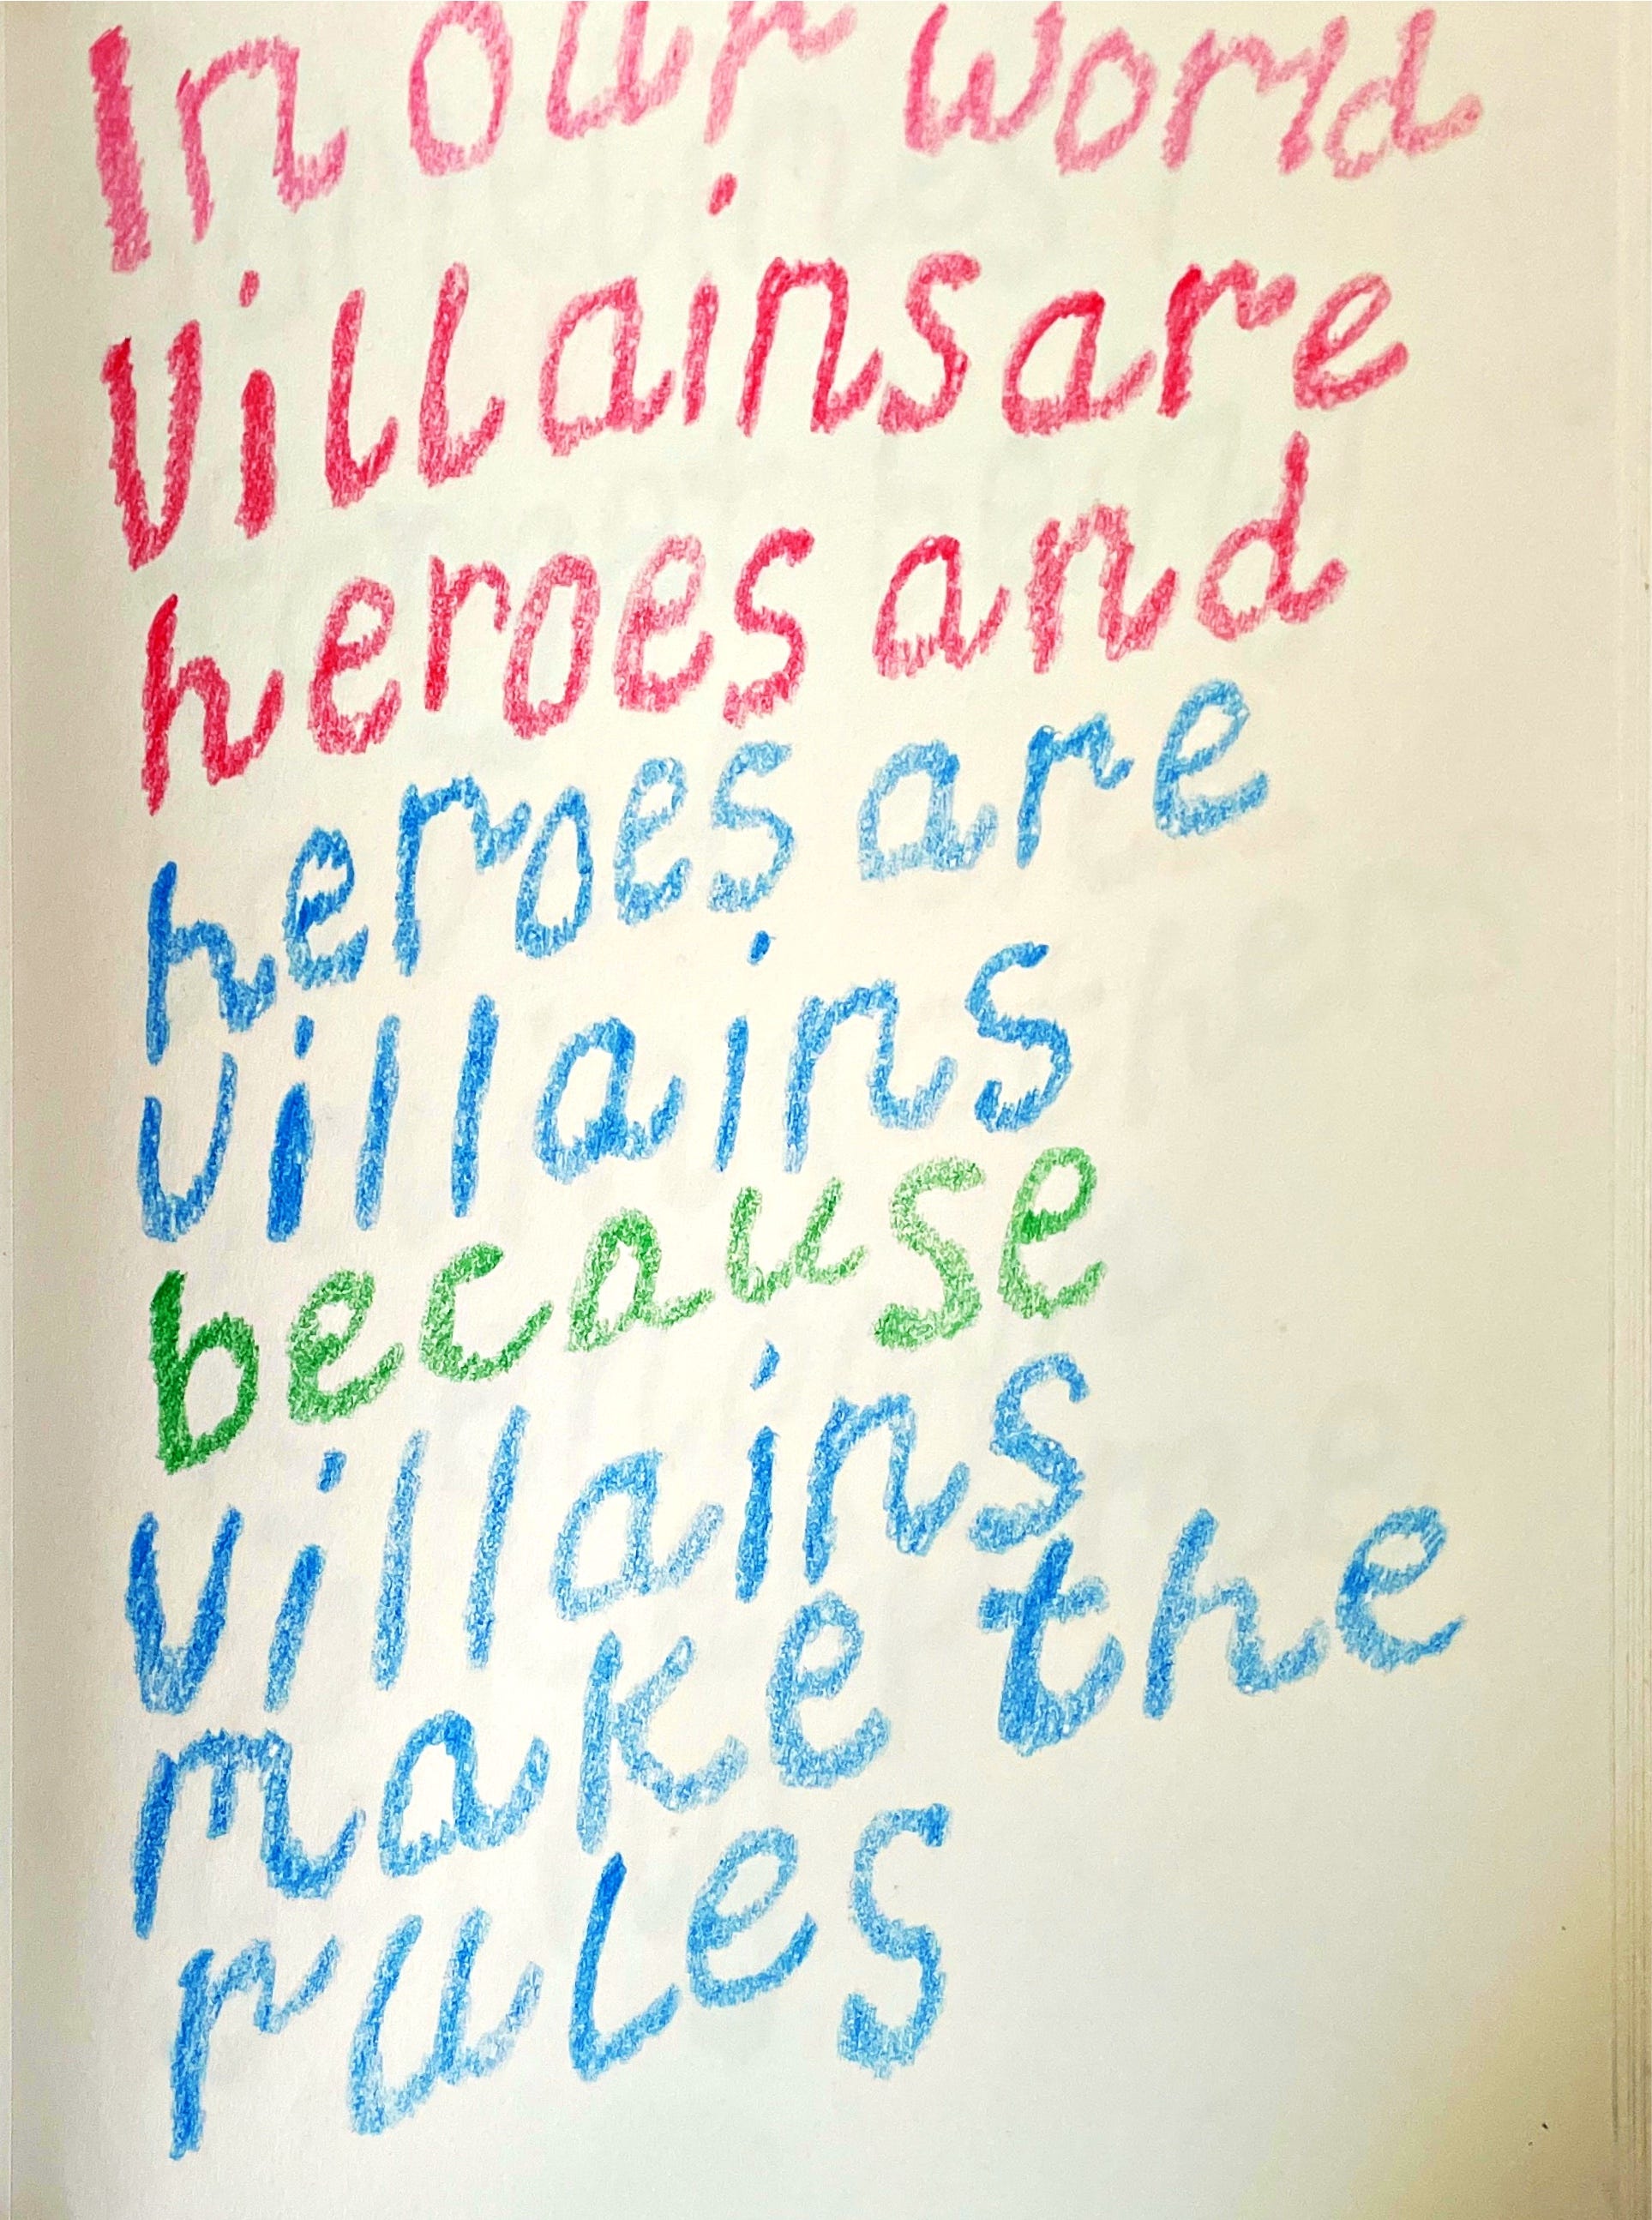 In our world
Villains are
heroes and
heroes are
villains
because
villains
make the
rules